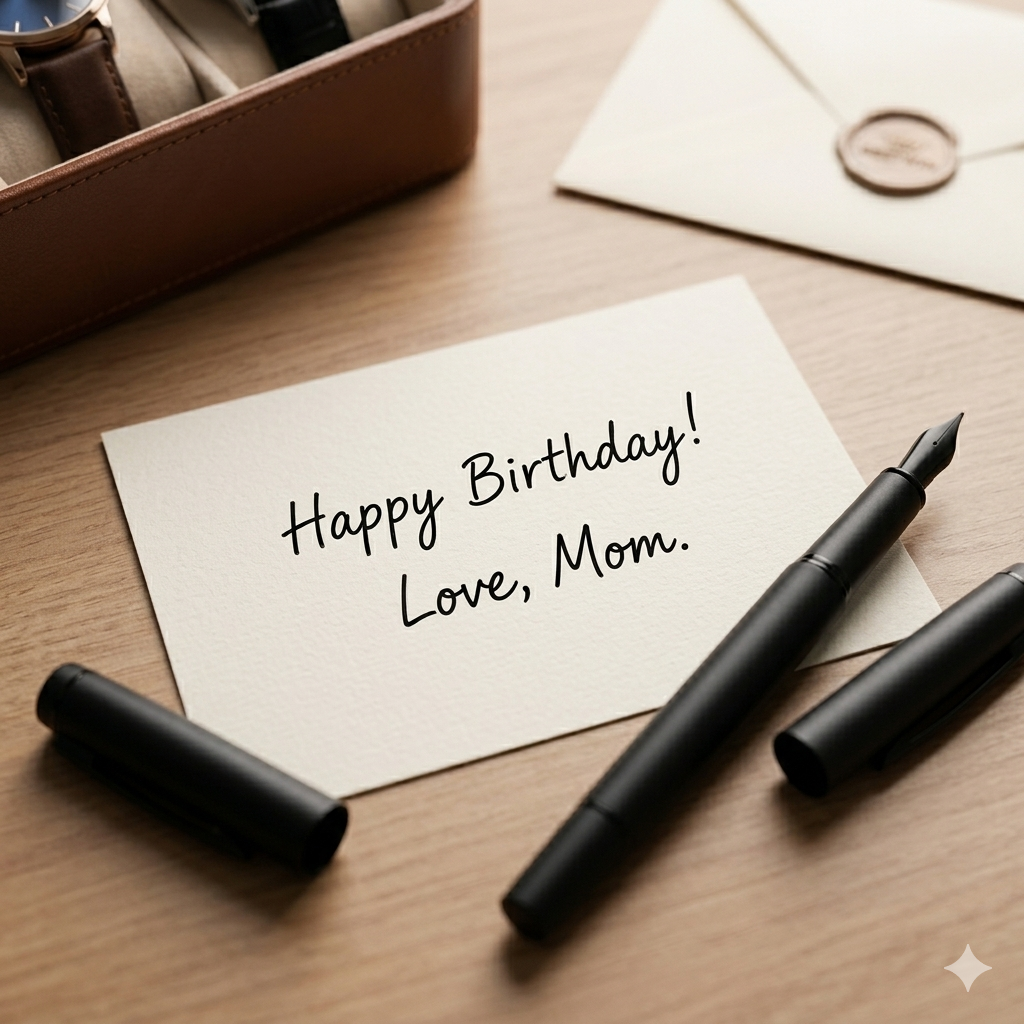 Happy Birthday!
Love, Mom.